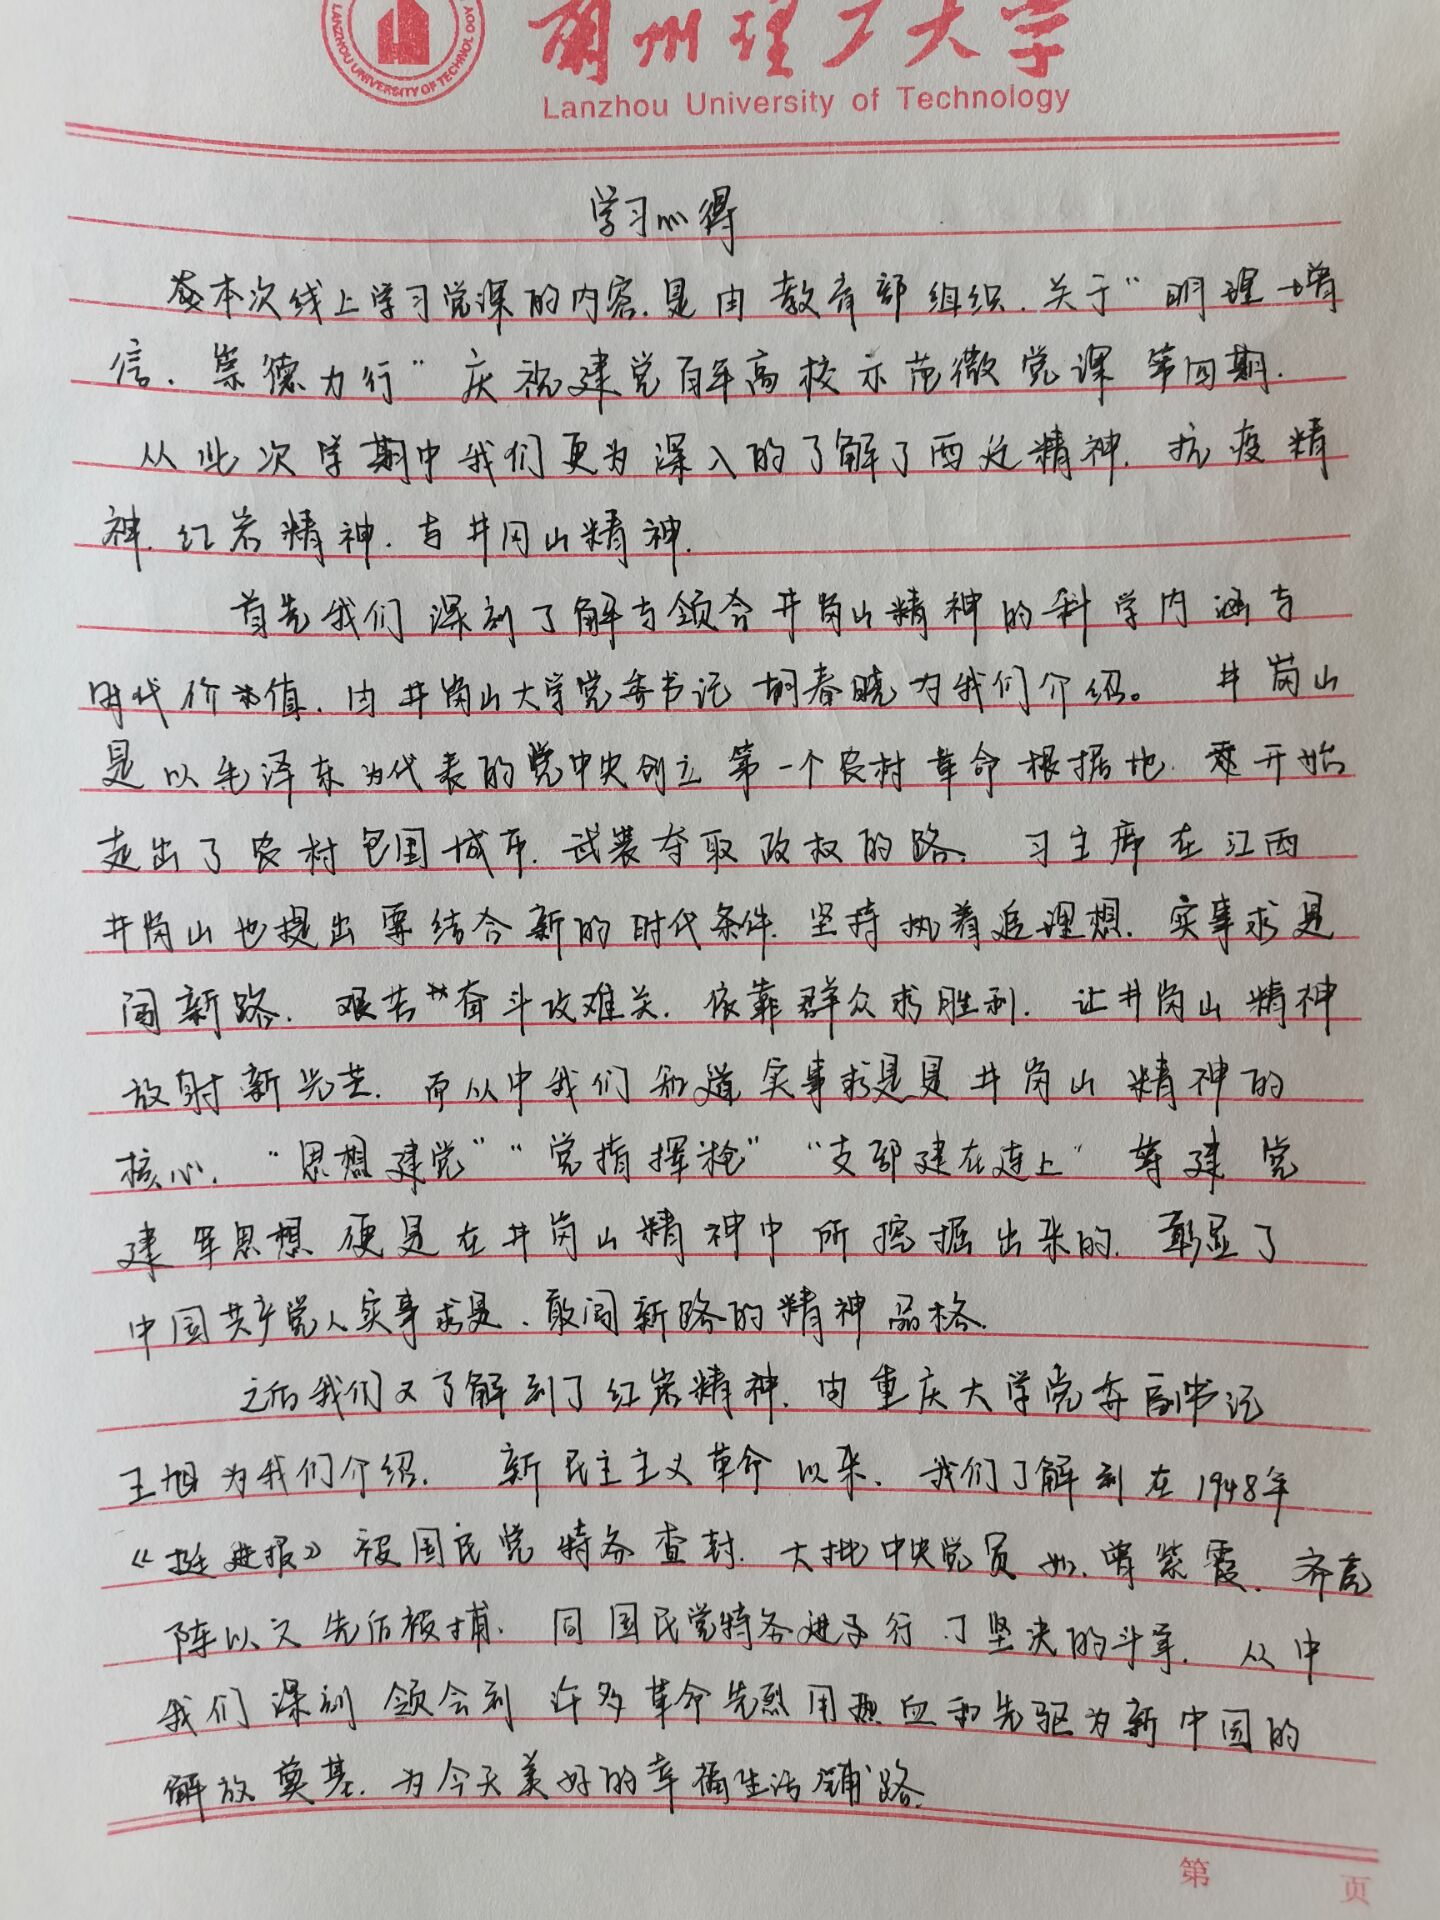 LANZHOU UNIVERSITY OF TECHNOLOGY
兰州理工大学
Lanzhou University of Technology
学习心得
本次线上学习党课的内容.是由教育部组织.关于“明理增
信.崇德力行”庆祝建党百年高校示范微党课第四期.
从此次学期中我们更为深入的了解了西迁精神.抗疫精
神.红岩精神.与井冈山精神.
首先我们深刻了解与领会井岗山精神的科学内涵与
时代价值.由井岗山大学党委书记胡春晓为我们介绍。井岗山
是以毛泽东为代表的党中央创立第一个农村革命根据地.开始
走出了农村包围城市.武装夺取政权的路.习主席在江西
井岗山也提出要结合新的时代条件.坚持执着追理想.实事求是
闯新路.艰苦奋斗攻难关.依靠群众求胜利.让井岗山精神
放射新光芒.而从中我们知道实事求是是井岗山精神的
核心.“思想建党”“党指挥枪”“支部建在连上”等建党
建军思想便是在井岗山精神中所挖掘出来的.彰显了
中国共产党人实事求是、敢闯新路的精神品格.
之后我们又了解到了红岩精神.由重庆大学党委副书记
王旭为我们介绍.新民主主义革命以来.我们了解到在1948年
《挺进报》被国民党特务查封.大批中央党员如.曾紫霞.齐亮
陈以文先后被捕.同国民党特务进行了坚决的斗争.从中
我们深刻领会到许多革命先烈用热血和先驱为新中国的
解放奠基.为今天美好的幸福生活铺路.
第 页